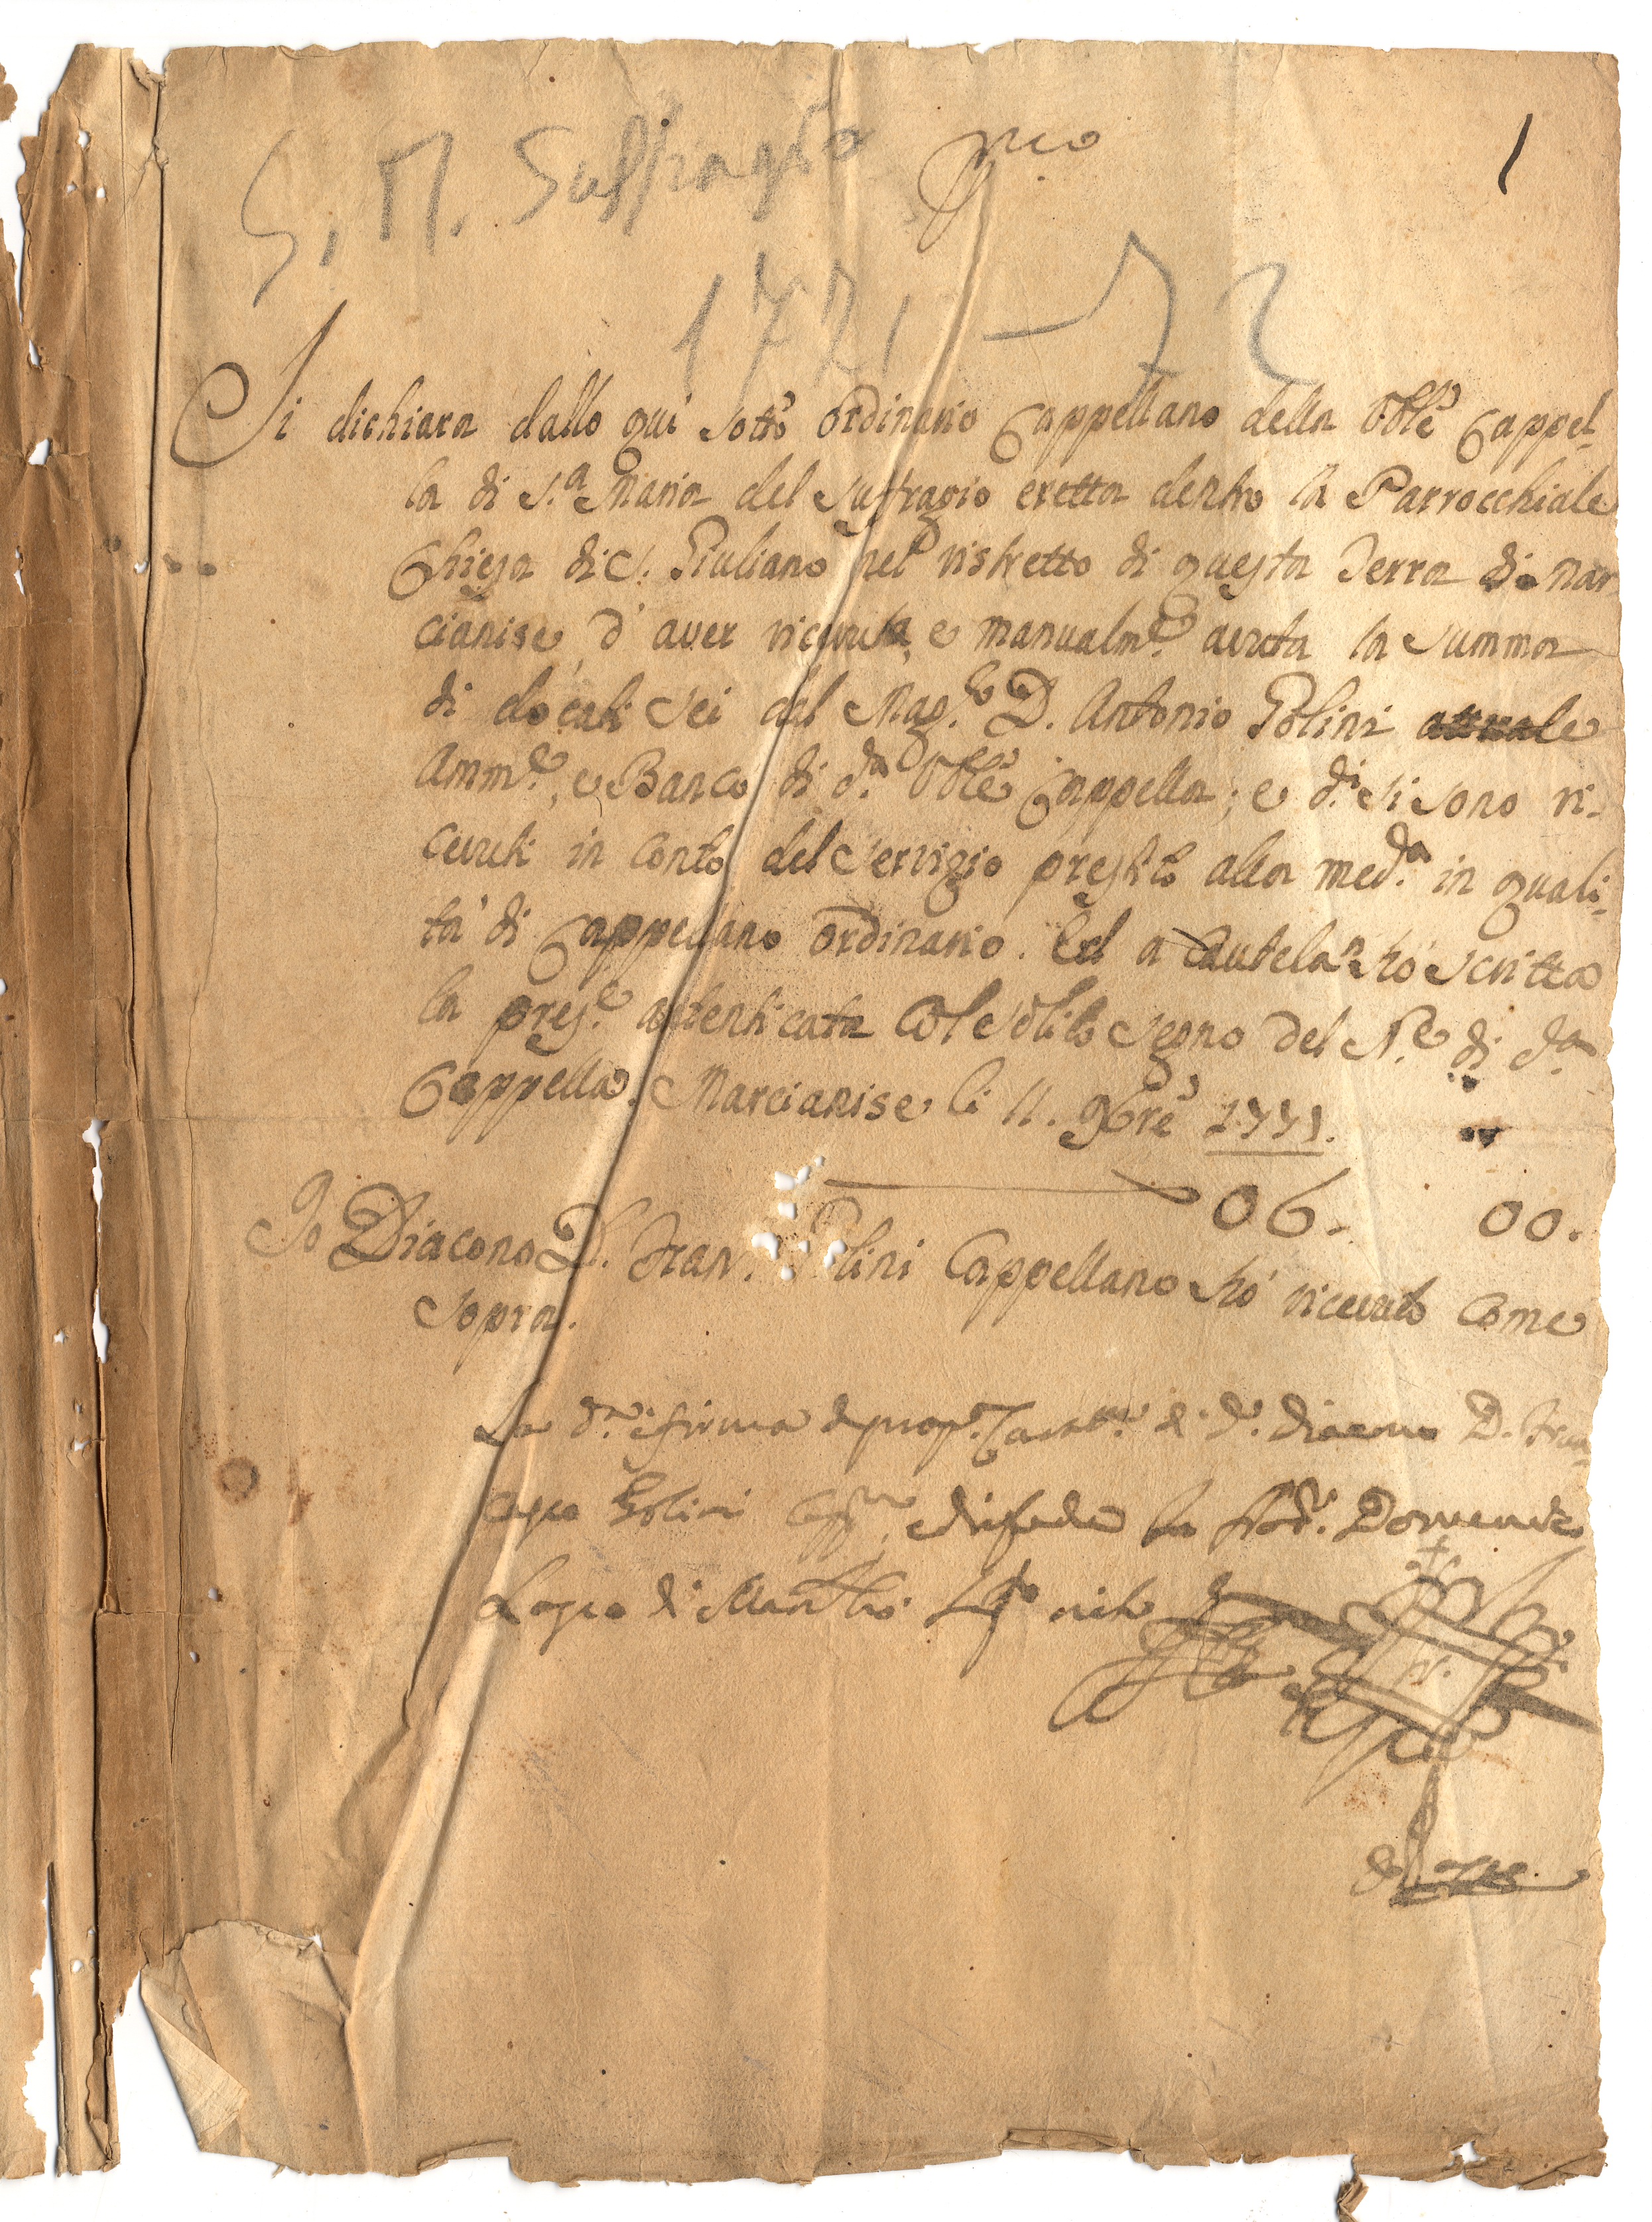 S. M. Suffragio
1
1771 – 72
Si dichiara dallo quì sotto ordinario Cappellano della Vble Cappel-
la di S.a Maria del Suffragio eretta dentro la Parrocchiale
Chiesa di S. Giuliano nel ristretto di questa Terra di Mar
cianise d'aver ricevuta, e manualme. avuta la summa
di docati sei dal Mag.co D. Antonio Golini attuale
Amm.e, e Banco di d.a Vble Cappella; e d.i si sono ri-
cevuti in conto del servizio prestato alla med.a in quali-
tà di Cappellano ordinario. Ed a cautela hò scritta
la pres.e autenticata col solito segno del N.e di d.a
Cappella. Marcianise li 11. 9bre 1771.
06. 00.
Io Diacono D. Fran. Golini Cappellano hò ricevuto come
sopra.
La d.a firma di d.o Diacono D. Fran-
cesco Golini in fede Domenico